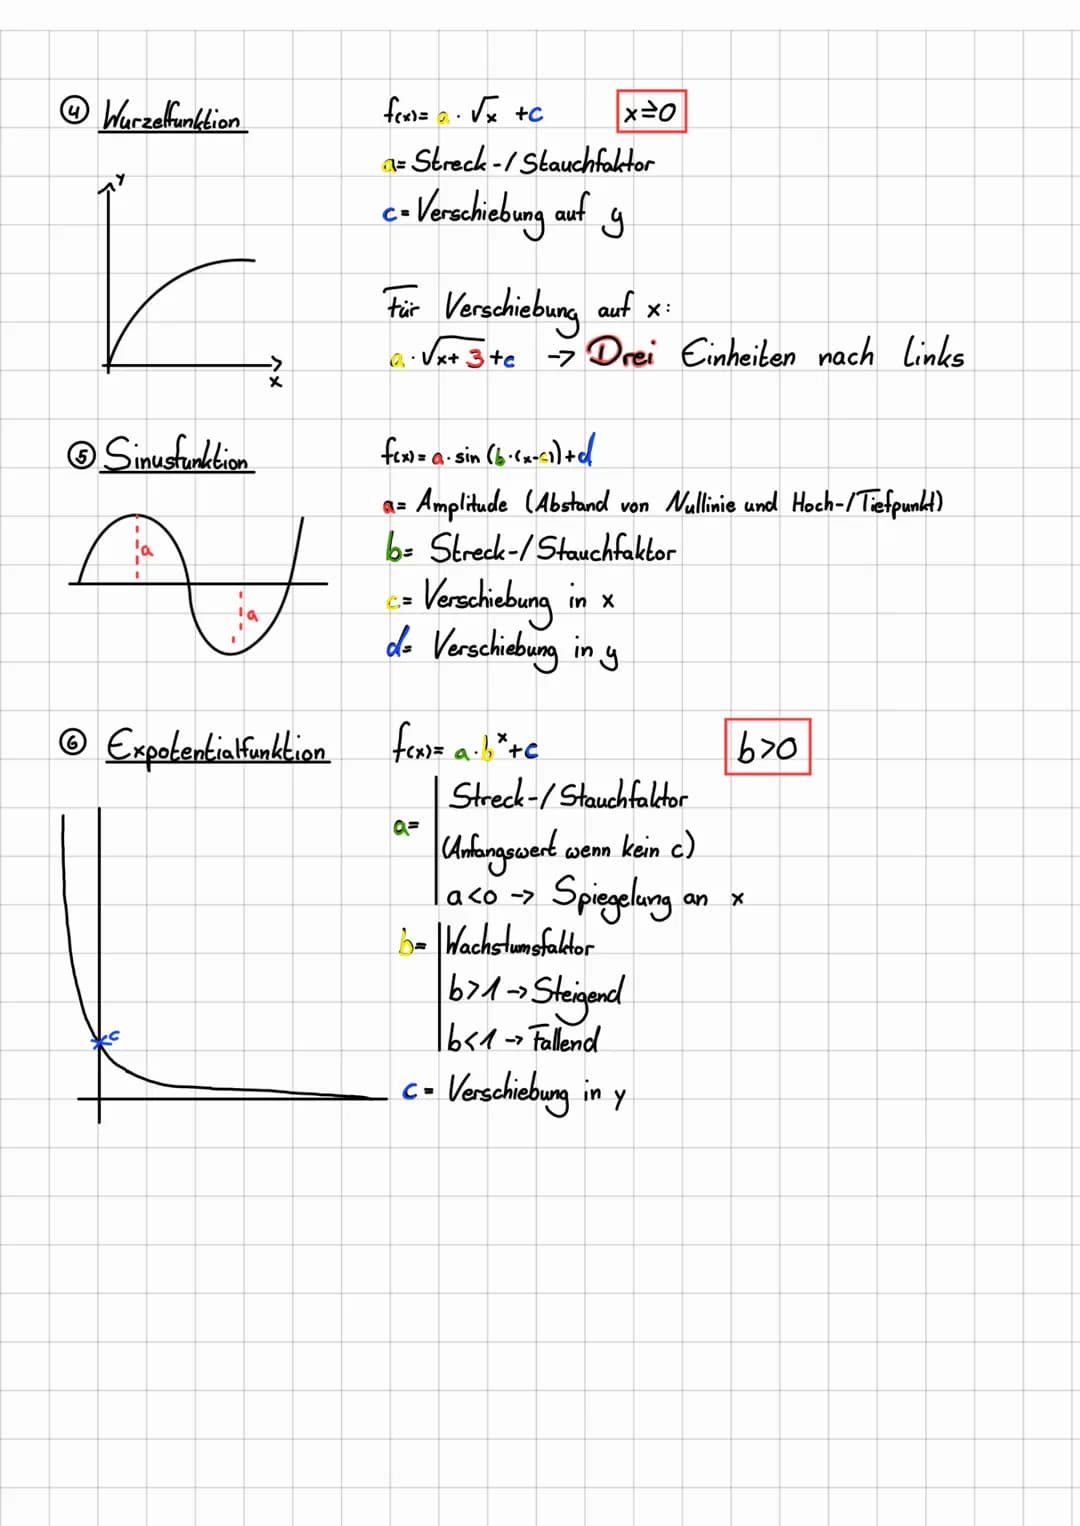 ④ Wurzelfunktion
f(x)= a · √x +c
x≥0
a= Streck-/Stauchfaktor
c= Verschiebung auf y
y
x
Für Verschiebung auf x:
a · √x+3 +c -> Drei Einheiten nach links
⑤ Sinusfunktion
f(x)= a · sin (b·(x-c))+d
a= Amplitude (Abstand von Nullinie und Hoch-/Tiefpunkt)
b= Streck-/Stauchfaktor
c= Verschiebung in x
d= Verschiebung in y
a
a
⑥ Expotentialfunktion
f(x)= a·b^x+c
b>0
a= Streck-/Stauchfaktor
(Anfangswert wenn kein c)
a<0 -> Spiegelung an x
b= Wachstumsfaktor
b>1 -> Steigend
b<1 -> Fallend
c
c= Verschiebung in y